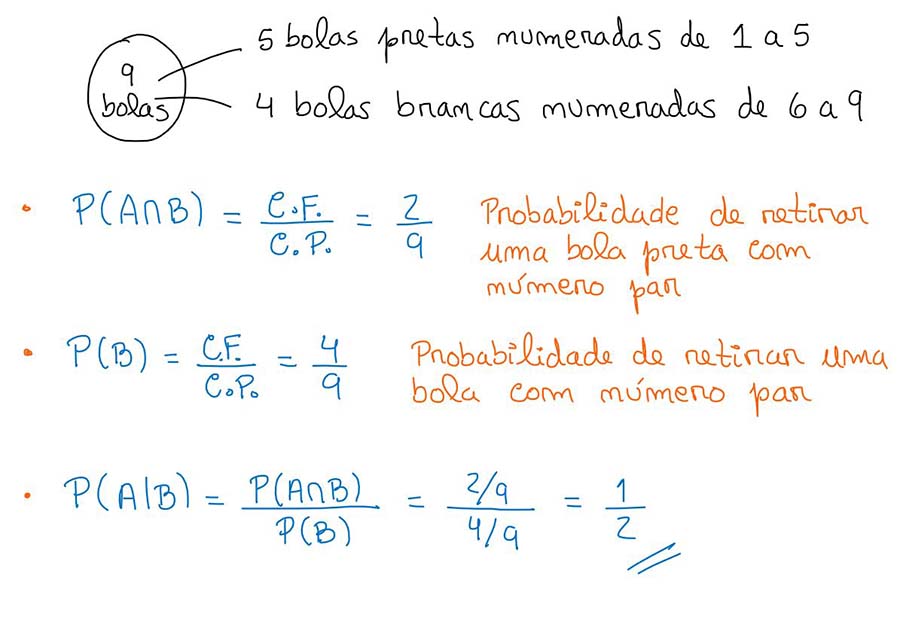 5 bolas pretas numeradas de 1 a 5
9
bolas
4 bolas brancas numeradas de 6 a 9
• P(A∩B) = C.F./C.P. = 2/9 Probabilidade de retirar
uma bola preta com
número par
• P(B) = C.F./C.P. = 4/9 Probabilidade de retirar uma
bola com número par
• P(A|B) = P(A∩B)/P(B) = (2/9)/(4/9) = 1/2